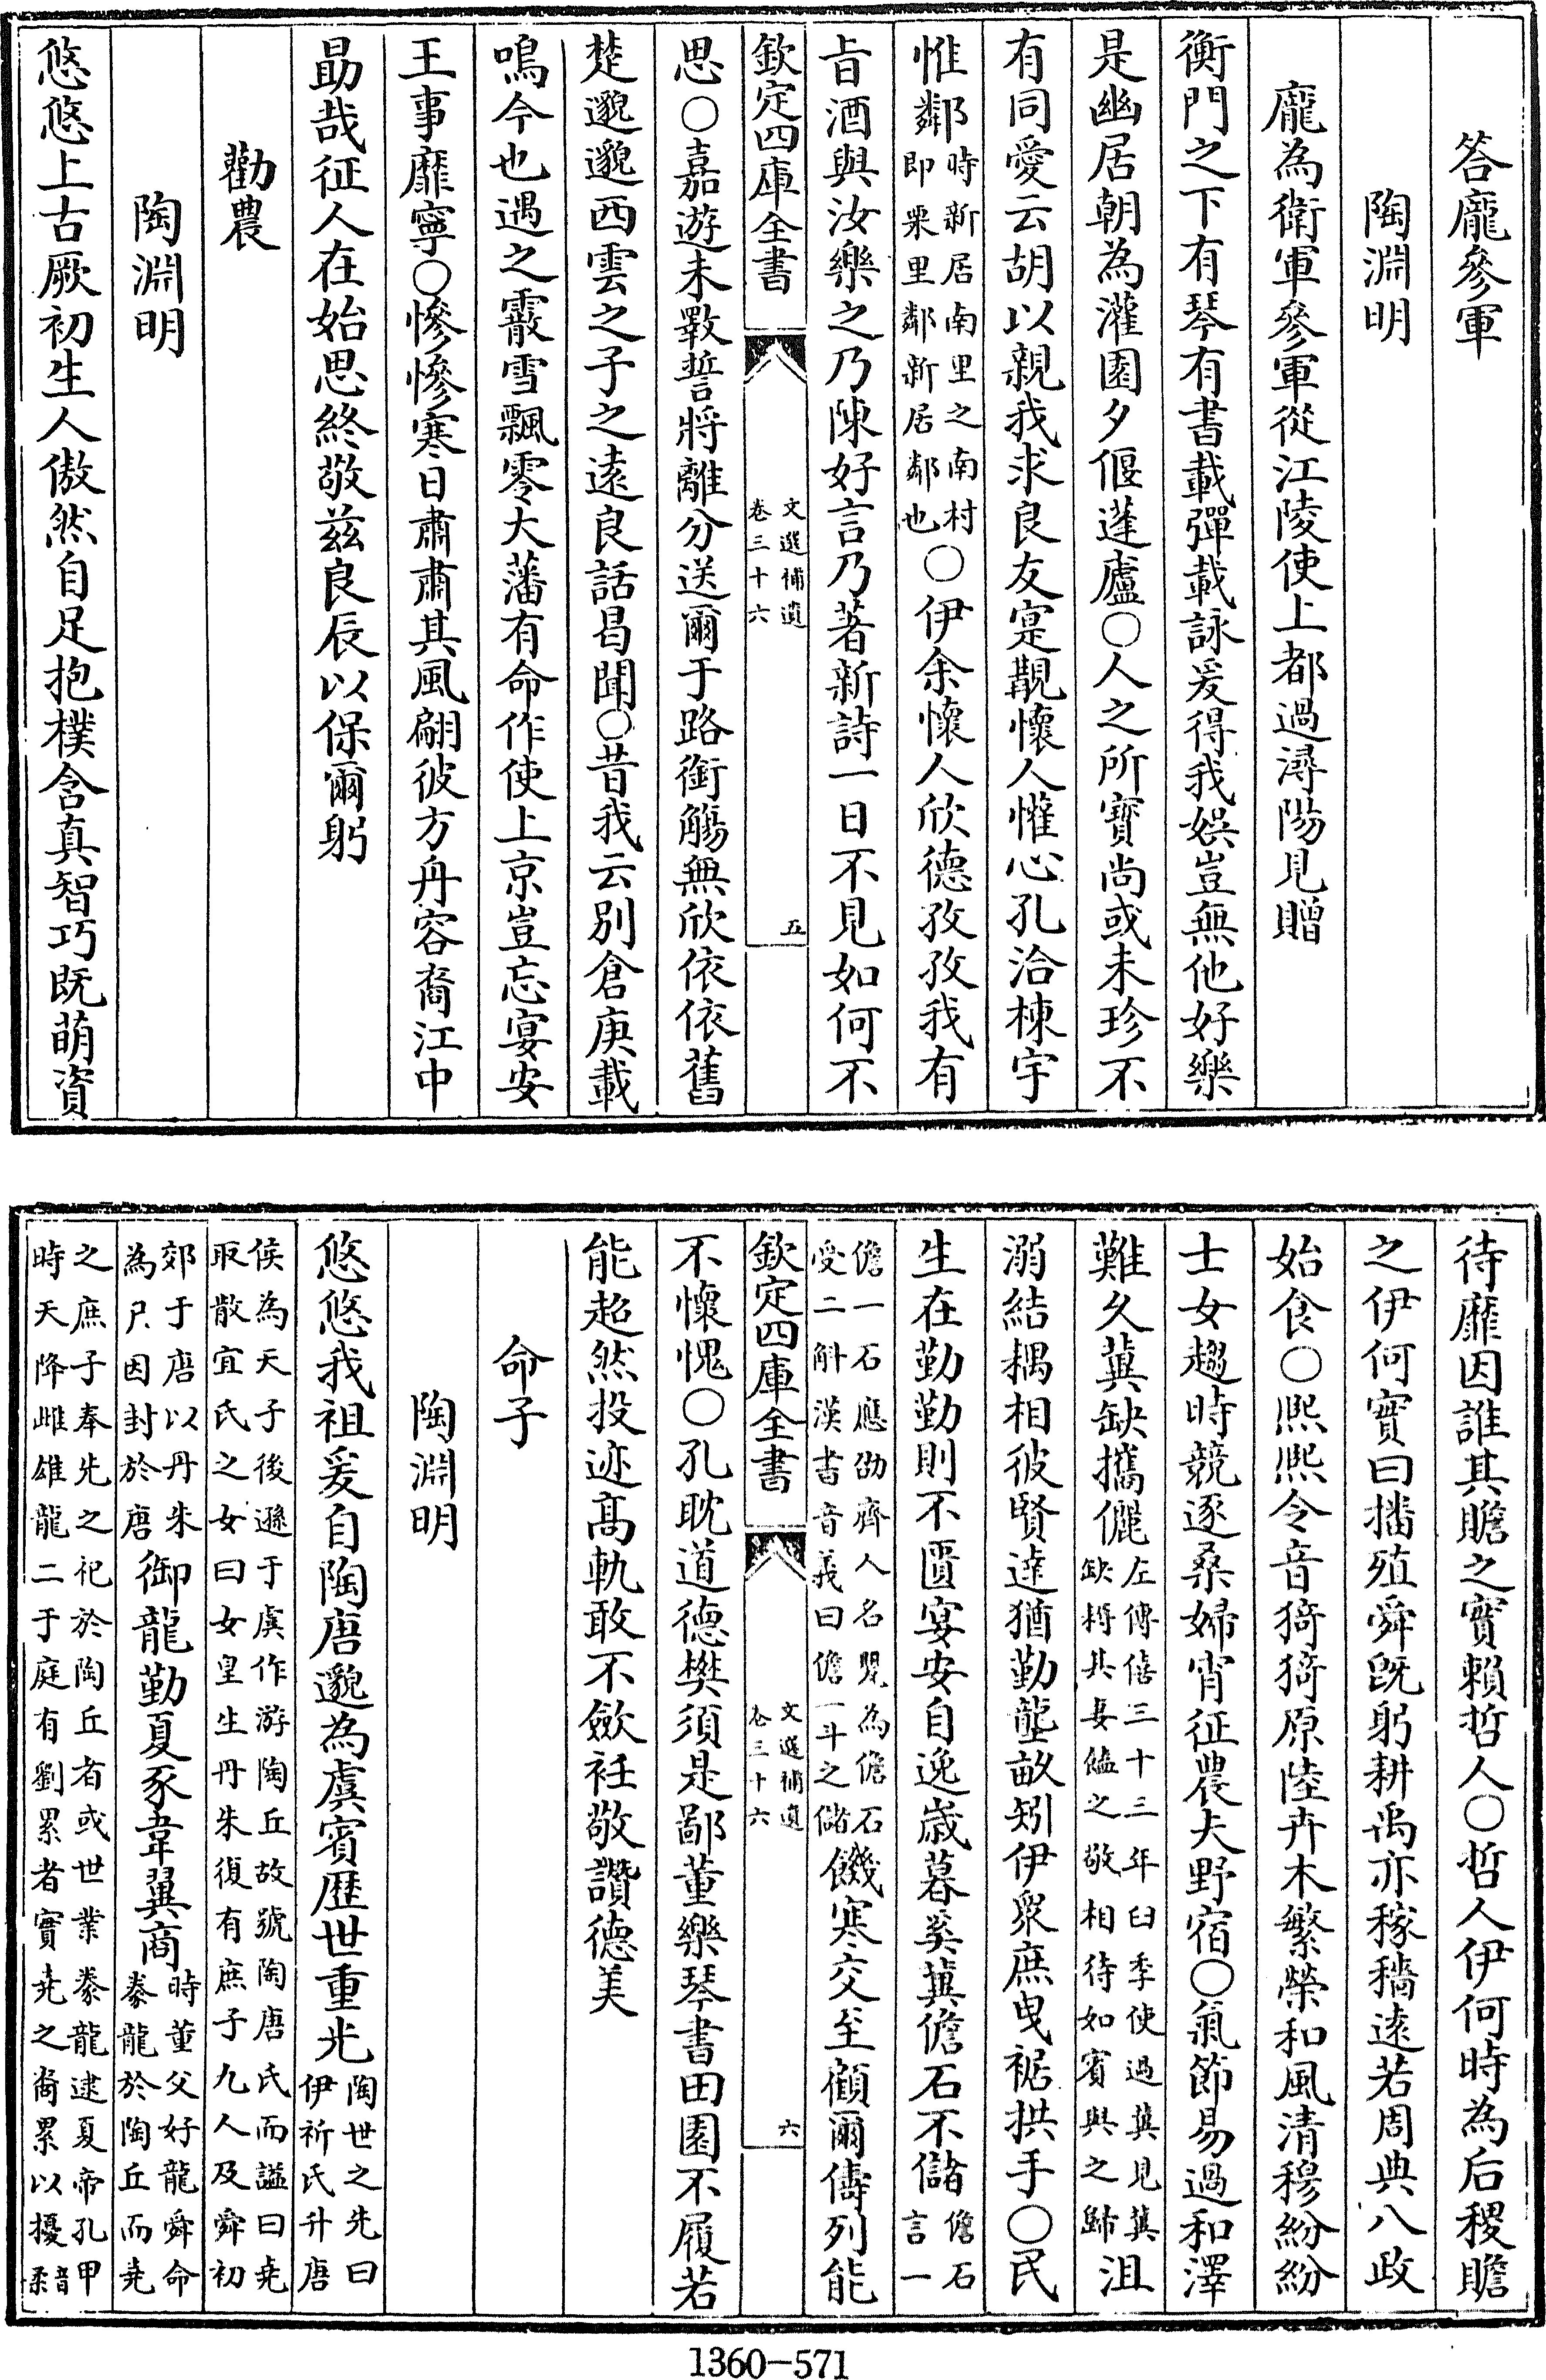 答龐參軍
陶淵明
龐為衛軍參軍從江陵使上都過潯陽見贈
衡門之下有琴有書載彈載詠爰得我娱豈無他好樂
是幽居朝為灌園夕偃蓬廬○人之所寳尚或未珍不
有同愛云胡以親我求良友寔覯懐人懽心孔洽棟宇
惟鄰時新居南里之南村即栗里鄰新居鄰也○伊余懐人欣德孜孜我有
旨酒與汝樂之乃陳好言乃著新詩一日不見如何不
欽定四庫全書 文選補遺卷三十六 五
思○嘉遊未斁誓將離分送爾于路銜觴無欣依依舊
楚邈邈西雲之子之逺良話曷聞○昔我云別倉庚載
鳴今也遇之霰雪飄零大藩有命作使上京豈忘宴安
王事靡寧○慘慘寒日肅肅其風翩彼方舟容裔江中
勗哉征人在始思終敬兹良辰以保爾躬
勸農
陶淵明
悠悠上古厥初生人傲然自足抱樸含真智巧既萌資
待靡因誰其贍之實賴哲人○哲人伊何時為后稷贍
之伊何實曰播殖舜既躬耕禹亦稼穡逺若周典八政
始食○熙熙令音猗猗原陸卉木繁榮和風清穆紛紛
士女趨時競逐桑婦宵征農夫野宿○氣節易過和澤
難久冀缺攜儷左傳僖三十三年臼季使過冀見冀缺耨其妻饁之敬相待如賓與之歸沮
溺結耦相彼賢達猶勤壟畝矧伊衆庶曳裾拱手○民
生在勤勤則不匱宴安自逸嵗暮奚冀儋石不儲儋石言一
儋一石應劭齊人名甖為儋石受二斛漢書音義曰儋一斗之儲饑寒交至顧爾儔列能
欽定四庫全書 文選補遺卷三十六 六
不懐愧○孔耽道德樊須是鄙董樂琴書田園不履若
能超然投迹髙軌敢不斂衽敬讚德美
命子
陶淵明
悠悠我祖爰自陶唐邈為虞賓歴世重光陶世之先曰伊祈氏升唐
侯為天子後遜于虞作游陶丘故號陶唐氏而謚曰堯取散宜氏之女曰女皇生丹朱復有庶子九人及舜初
郊于唐以丹朱為尸因封於唐御龍勤夏豕韋翼商時董父好龍舜命豢龍於陶丘而堯
之庶子奉先之祀於陶丘者或世業豢龍逮夏帝孔甲時天降雌雄龍二于庭有劉累者實堯之裔累以擾音柔
1360-571